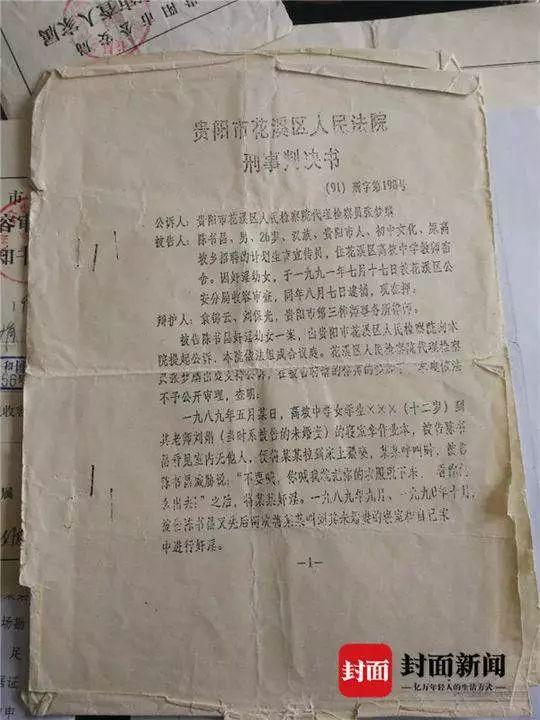 贵阳市花溪区人民法院
刑事判决书
(91)刑字第198号
公诉人：贵阳市花溪区人民检察院代理检察员张梦
被告人：陈书昌、男、26岁、汉族、贵阳市人、初中文化、原高
坡乡招聘的计划生育宣传员，住花溪区高坡中学教师宿
舍。因奸淫幼女，于一九九一年七月十七日被花溪区公
安分局收容审查，同年八月七日逮捕，现在押。
辩护人：袁锦云、刘、贵阳市第三律师事务所律师。
被告陈书昌奸淫幼女一案，由贵阳市花溪区人民检察院向本
院提起公诉，本院依法组成合议庭。花溪区人民检察院代理检察
员张梦出庭支持公诉，在被告
不予公开审理，查明：
一九八九年五月某日，高坡中学女学生×××（十二岁）到
其老师刘娟（当时系被告的未婚妻）的寝室拿作业本，被告陈书
昌看见室内无他人，便将某某拉到床上，某某呼叫时，被告
陈书昌威胁说："不要喊，你喊我
么出去！"之后，将某某奸淫。一九八九年九月、一九九〇年十月，
被告陈书昌又先后两次将某某叫到其未婚妻的寝室和自己家
中进行奸淫。
—1—
封面
封面新闻
亿万年轻人的生活方式